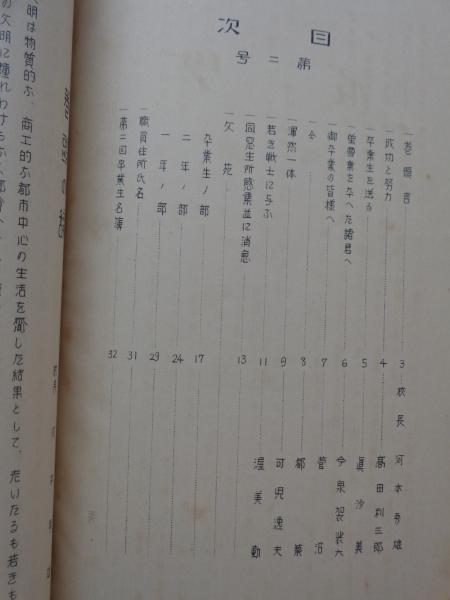 目次
第二号
一巻頭言 3 校長 河本
一成功と努力 4 高田利三郎
一卒業生を送る 5 眞沙美
一蛍雪業を卒へた諸君へ 6 今泉袈裟六
一御卒業の皆様へ 7 菅沼
一 8 都築
一渾然一体 9 可児逸夫
一若き戦士に与ふ 11 渥美勤
一同窓生所感集並に消息 13
一文苑
卒業生ノ部 17
二年ノ部 24
一年ノ部 29
一職員住所氏名 31
一第二回卒業生名簿 32
明は物質的な、商工的な都市中心の生活を齎した結果として、老いたるも若きも
の文明に憧れ